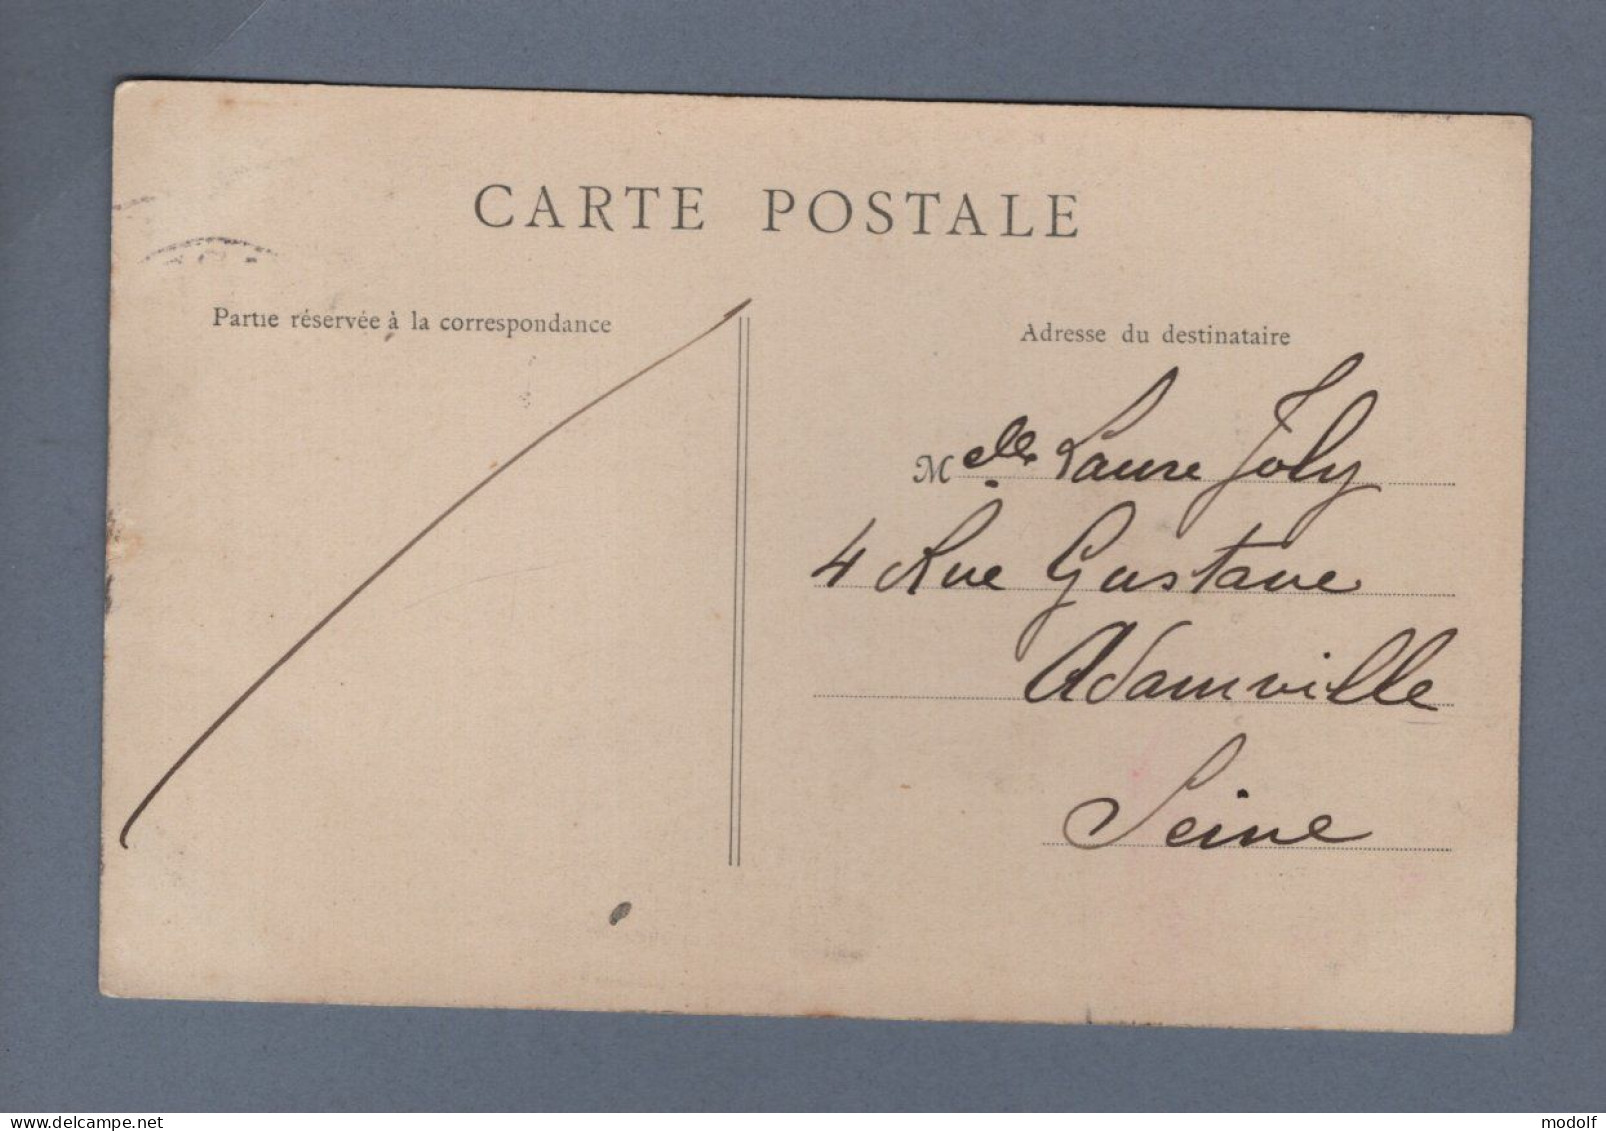 CARTE POSTALE
Partie réservée à la correspondance
Adresse du destinataire
Melle Laure Joly
4 Rue Gustave
Adamville
Seine
modolf